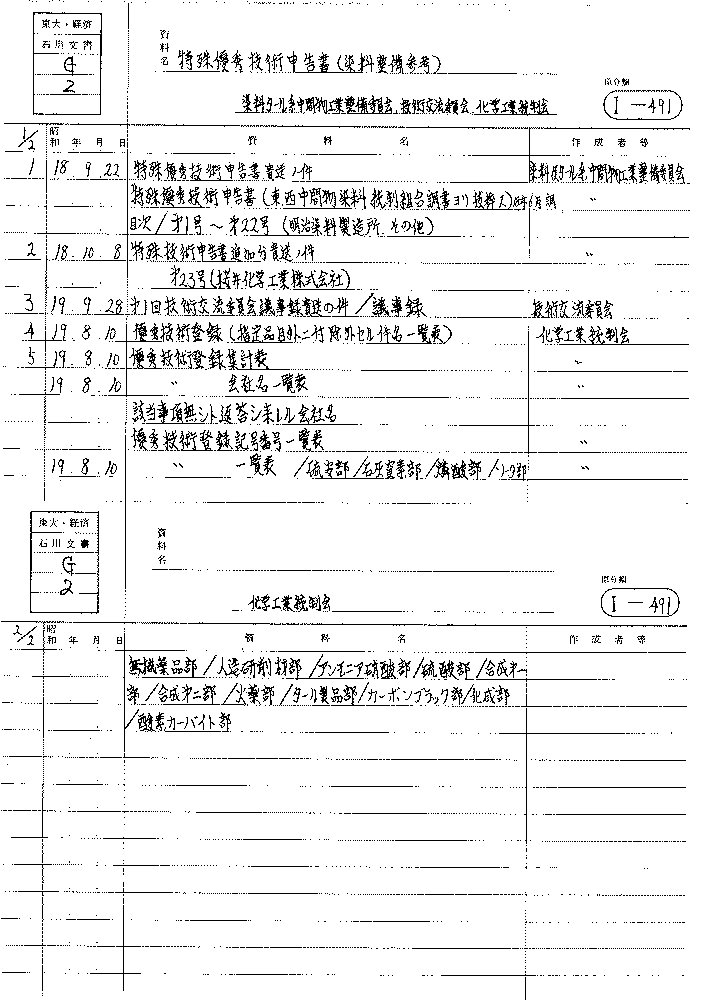 東大・経済
石川文書
G
2
資料名 特殊優秀技術申告書(染料整備参考)
原分類
I-491
染料タール系中間物工業整備委員会、技術交流委員会、化学工業統制会
1/2 昭和 年 月 日 資料名 作成者等
1 18.9.22 特殊優秀技術申告書貴送ノ件 染料及タール系中間物工業整備委員会
特殊優秀技術申告書(東西中間物染料統制組合調書ヨリ抜粋ス)18年6月調 〃
目次/第1号～第22号(明治染料製造所 その他)
2 18.10.8 特殊技術申告書追加分貴送ノ件 〃
第23号(桜井化学工業株式会社)
3 19.9.28 第1回技術交流委員会議事録貴送の件/議事録 技術交流委員会
4 19.8.10 優秀技術登録(指定品目外ニ付除外セル件名一覧表) 化学工業統制会
5 19.8.10 優秀技術登録集計表 〃
19.8.10 〃 会社名一覧表 〃
該当事項無シト返答シ来レル会社名
優秀技術登録記号番号一覧表 〃
19.8.10 〃 一覧表 /硫安部/石灰窒素部/燐酸部/ソーダ部 〃
東大・経済
石川文書
G
2
資料名
原分類
I-491
化学工業統制会
2/2 昭和 年 月 日 資料名 作成者等
無機薬品部/人造研削材部/アンモニア硝酸部/硫酸部/合成第一
部/合成第二部/火薬部/タール製品部/カーボンブラック部/化成部
/酸素カーバイト部